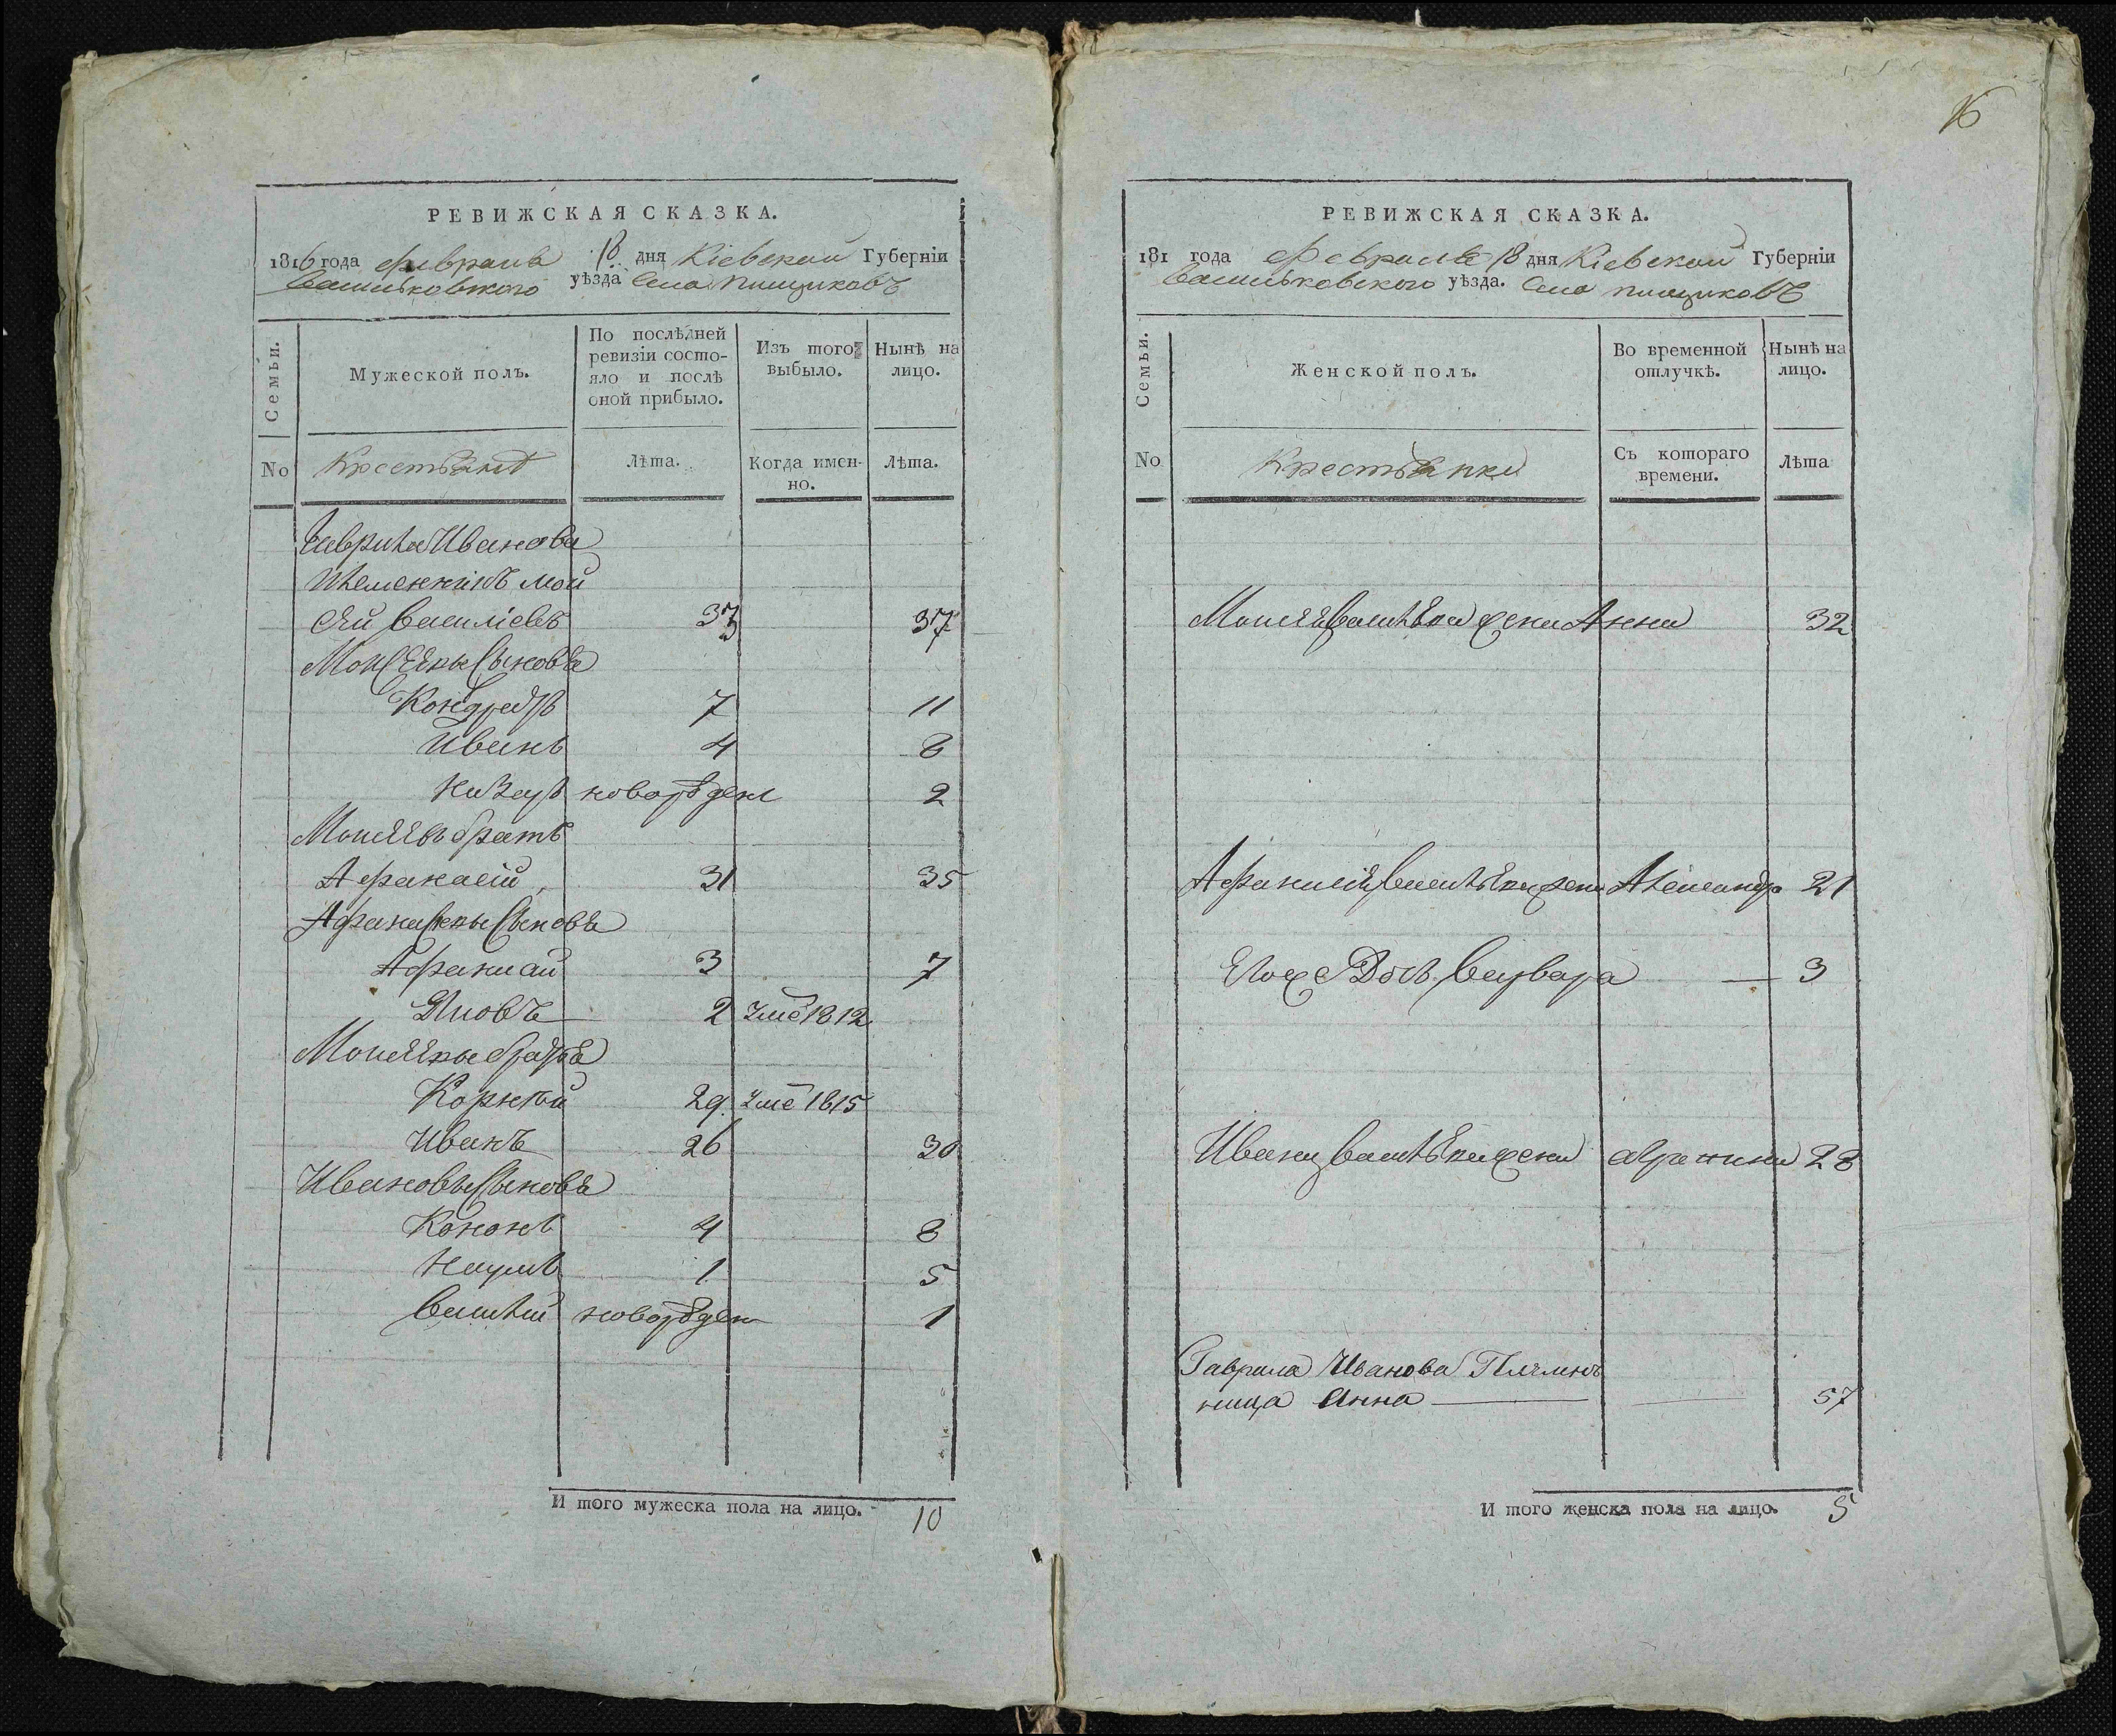 РЕВИЖСКАЯ СКАЗКА.
1816 года февраля 18 дня Кіевской Губерніи
Васильковского уѣзда Села Пищиковъ
Семьи.
Мужеской полъ.
По послѣдней ревизіи состо-
яло и послѣ оной прибыло.
Изъ того выбыло.
Нынѣ на лицо.
No
Крестьянѣ
Лѣта.
Когда имен-
но.
Лѣта.
Гаврила Иванова
племенникъ мой
сѣй Василіевъ 33 37
Сыновья
Кондратъ 7 11
Иванъ 4 8
Назаръ новорожден 2
братъ
Афанасій 31 35
Сыновья
3 7
Яковъ 2 уме 1812
братья
Корнѣй 29 уме 1815
Иванъ 26 30
Ивановы Сыновья
Кононъ 4 8
Наумъ 1 5
Василій новорожден 1
И того мужеска пола на лицо. 10
16
РЕВИЖСКАЯ СКАЗКА.
181 года февраля 18 дня Кіевской Губерніи
Васильковского уѣзда. Села Пищиковъ
Семьи.
Женской полъ.
Во временной отлучкѣ.
Нынѣ на лицо.
No
Крестьянки
Съ котораго времени.
Лѣта
жена Анна 32
жена Александра 21
Его же Дочь Варвара 3
Ивана жена 28
Гаврила Иванова Племен
ница Анна 57
И того женска пола на лицо. 5